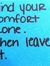 find your
comfort
zone.
then leave
it.